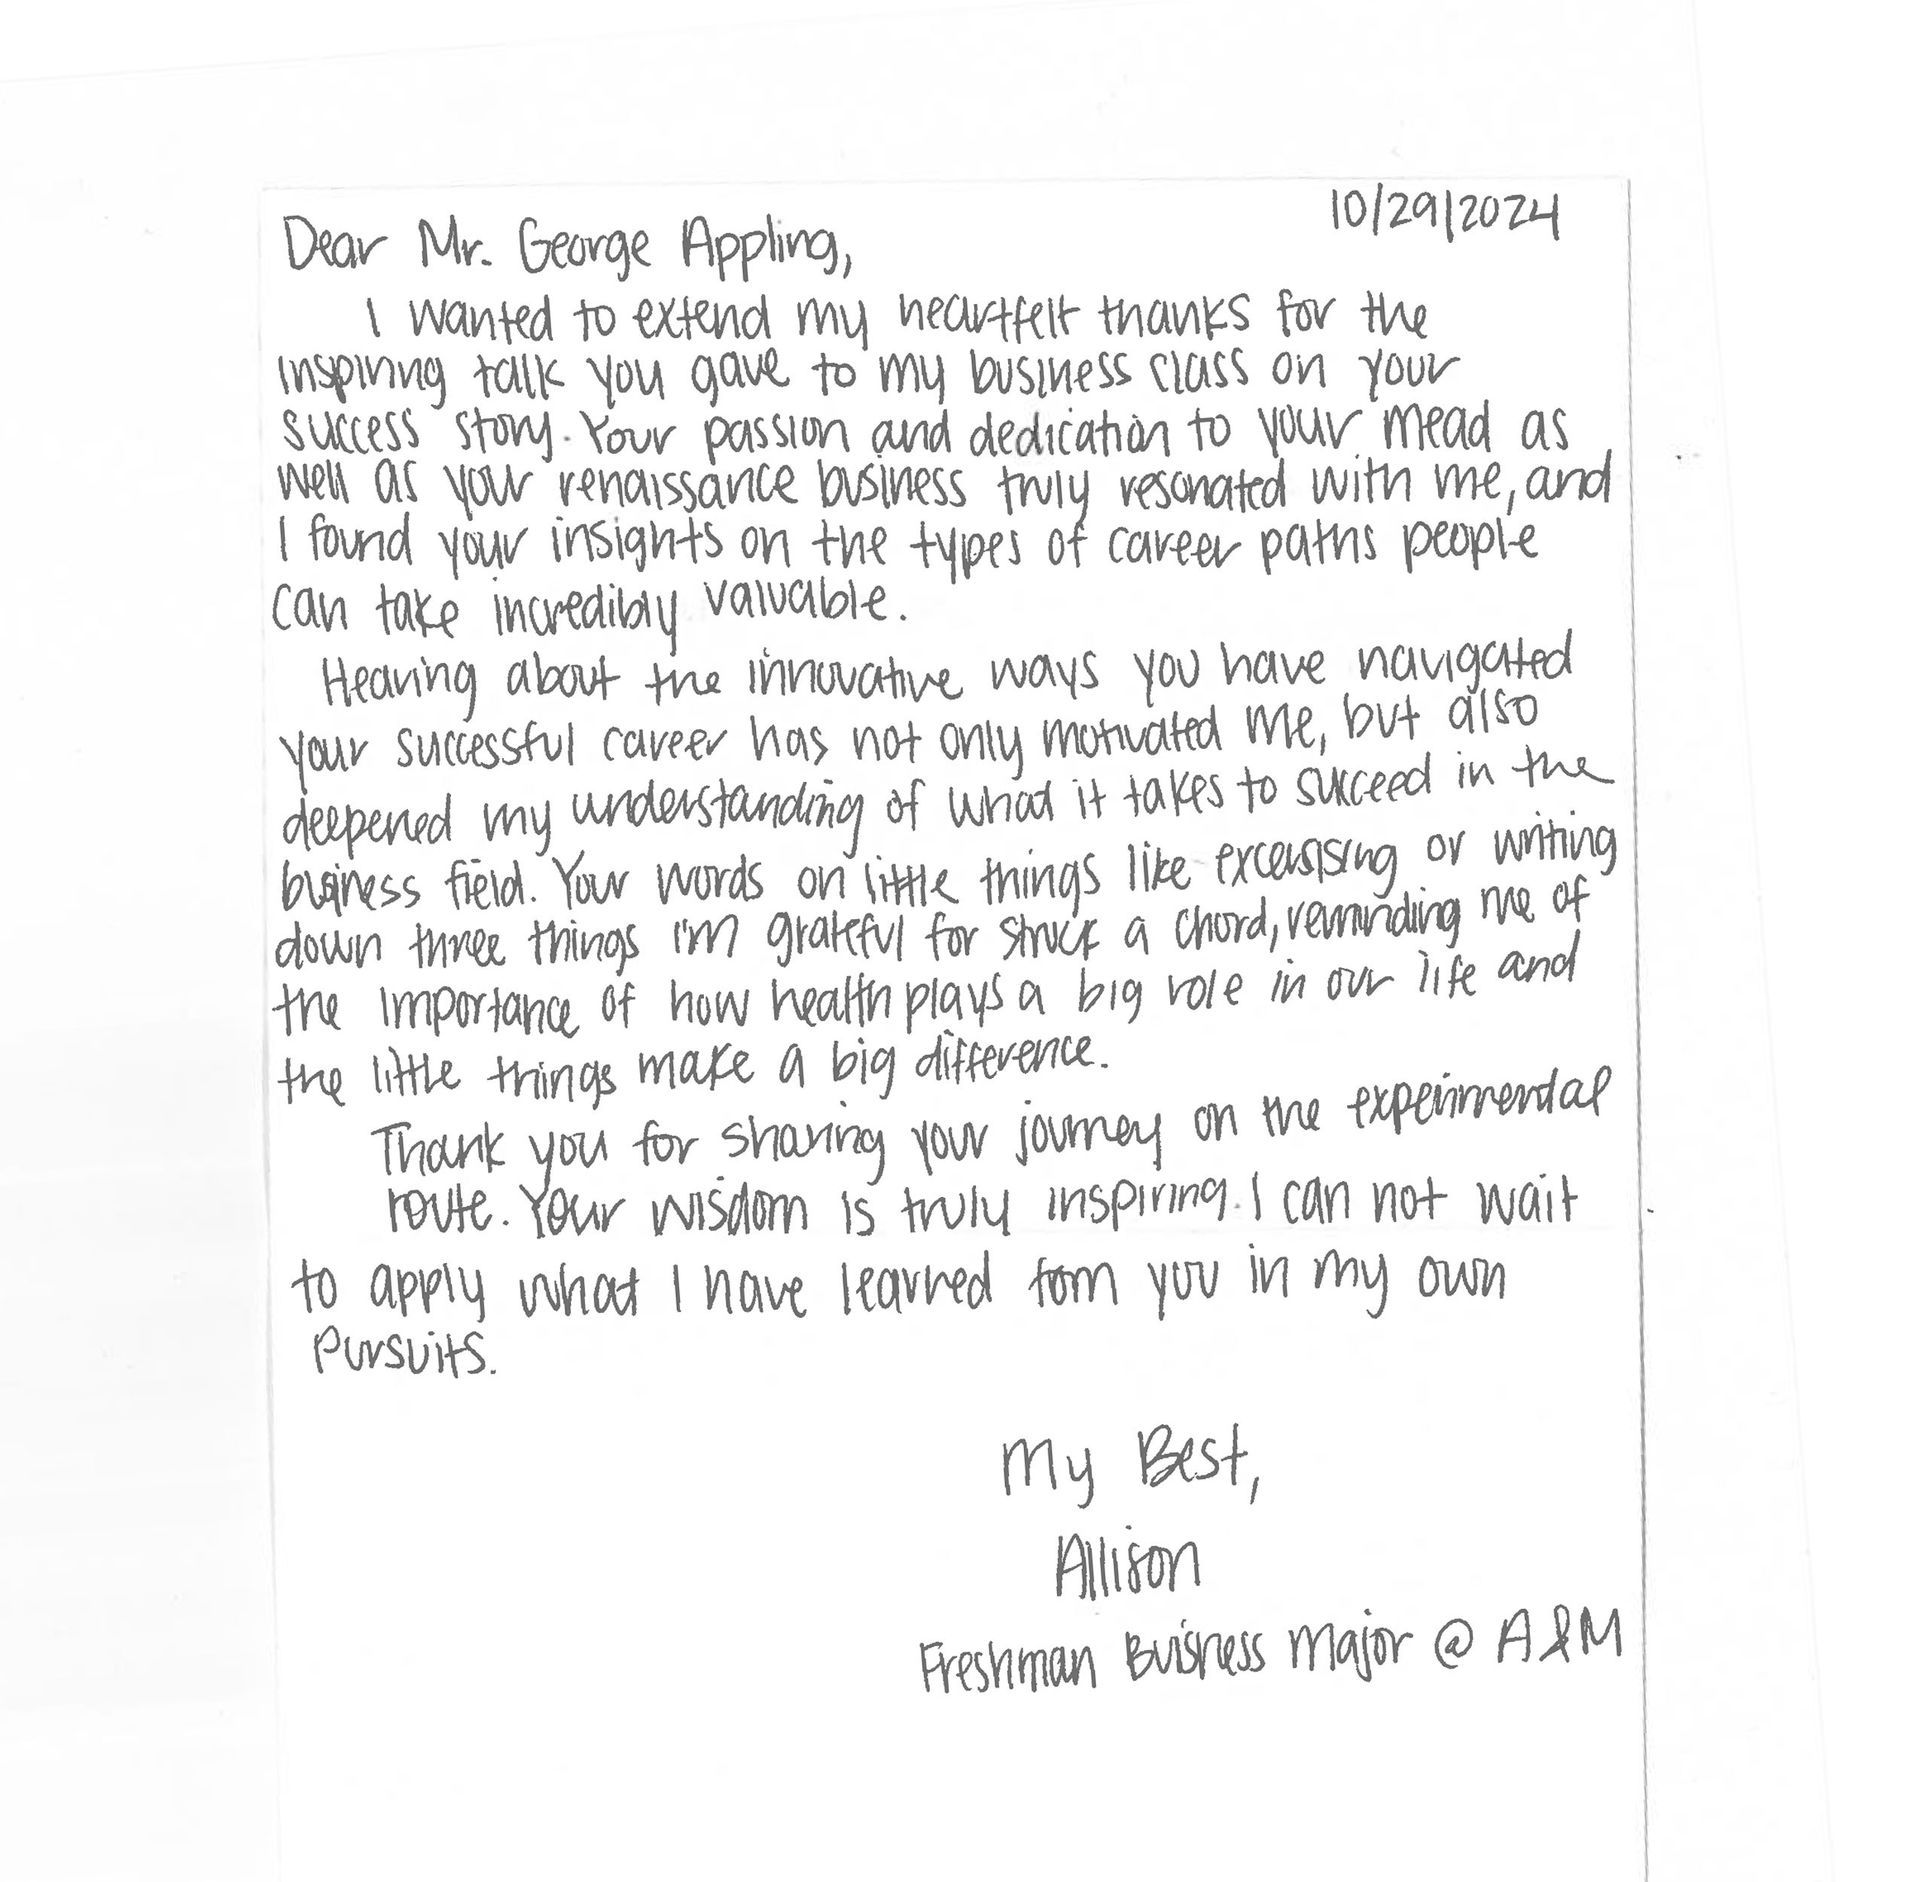 10/29/2024
Dear Mr. George Appling,
I wanted to extend my heartfelt thanks for the
inspiring talk you gave to my business class on your
success story. Your passion and dedication to your mead as
well as your renaissance business truly resonated with me, and
I found your insights on the types of career paths people
can take incredibly valuable.
Hearing about the innovative ways you have navigated
your successful career has not only motivated me, but also
deepened my understanding of what it takes to succeed in the
business field. Your words on little things like excersising or writing
down three things I'm grateful for struck a chord, reminding me of
the importance of how health plays a big role in our life and
the little things make a big difference.
Thank you for sharing your journey on the experimental
route. Your wisdom is truly inspiring. I can not wait
to apply what I have learned fom you in my own
pursuits.
My Best,
Allison
Freshman Buisness Major @ A&M